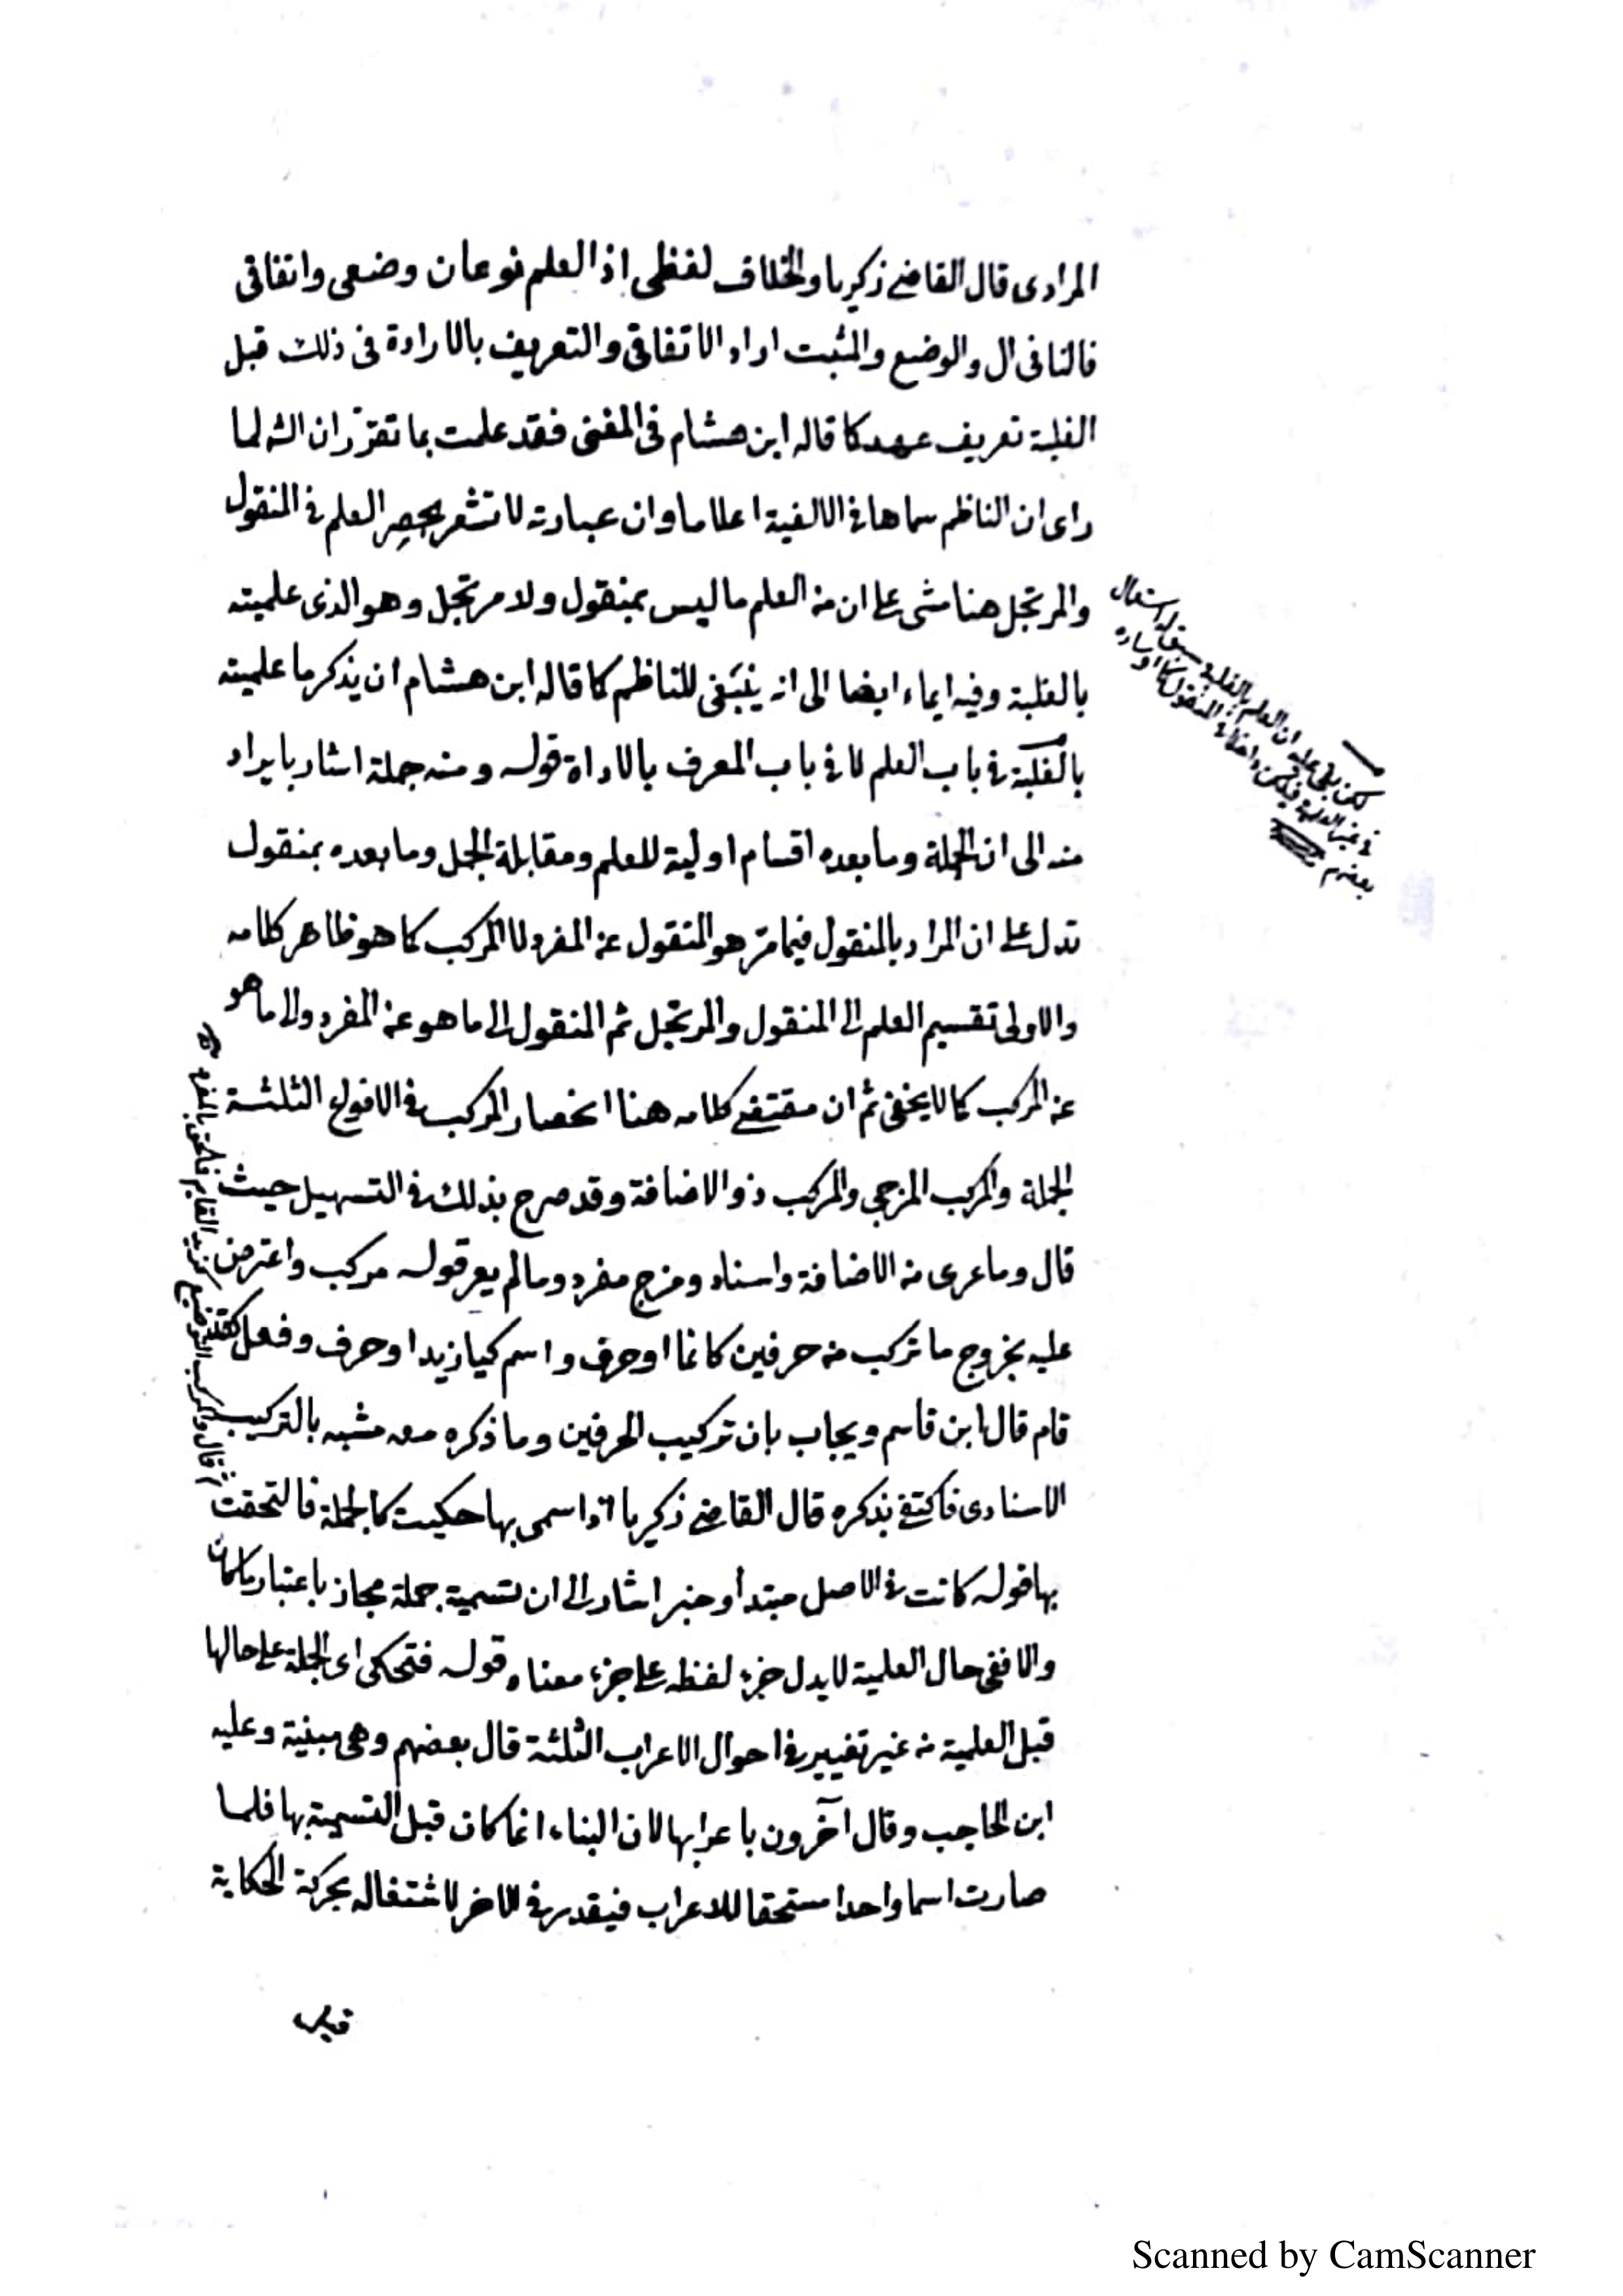 المرادى قال القاضى زكريا والخلاف لفظى اذ العلم نوعان وضعى واتفاقى
فالنافى ال والوضع والمثبت اراد الاتفاقى والتعريف بالارادة فى ذلك قبل
الغلبة تعريف عهد كما قاله ابن هشام فى المغنى فقد علمت بما تقرر ان الش لما
راى ان الناظم سماها فى الالفية اعلاما وان عبارته لا تشعر بحصر العلم فى المنقول
والمرتجل هنا مشى على ان من العلم ما ليس بمنقول ولا مرتجل وهو الذى علميته
بالغلبة وفيه ايماء ايضا الى انه ينبغى للناظم كما قاله ابن هشام ان يذكر ما علميته
بالغلبة فى باب العلم لا فى باب المعرف بالاداة قوله ومنه جملة اشار بايراد
منه الى ان الجملة وما بعده اقسام اولية للعلم ومقابلة الجمل وما بعده بمنقول
تدل على ان المراد بالمنقول فيما مر هو المنقول عن المفرد لا المركب كما هو ظاهر كلامه
والاولى تقسيم العلم الى المنقول والمرتجل ثم المنقول الى ما هو عن المفرد والى ما هو
عن المركب كما لا يخفى ثم ان مقتضى كلامه هنا انحصار المركب فى الانواع الثلثة
الجملة والمركب المزجى والمركب ذو الاضافة وقد صرح بذلك فى التسهيل حيث
قال وما عرى من الاضافة واسناد ومزج مفرد وما لم يعر قوله مركب واعترض
عليه بخروج ما تركب من حرفين كانما او حرف واسم كيا زيدا او حرف وفعل كقد
قام قال ابن قاسم ويجاب بان تركيب الحرفين وما ذكره معه مشبه بالتركيب
الاسنادى فاكتفى بذكره قال القاضى زكريا اذا سمى بها حكيت كالجملة فالتحقت
بها قوله كانت فى الاصل مبتدأ وخبر اشار الى ان تسمية جملة مجاز باعتبار ما كان
والا ففى حال العلمية لا يدل جزء لفظه على جزء معناه قوله فتحكى اى الجملة على حالها
قبل العلمية من غير تغيير فى احوال الاعراب الثلثة قال بعضهم وهى مبنية وعليه
ابن الحاجب وقال آخرون باعرابها لان البناء انما كان قبل التسمية بها فلما
صارت اسما واحدا مستحقا للاعراب فيقدر فى الاخر لاشتغاله بحركة الحكاية
لكن يلى عليه ان العلم بالغلبة سبق له استعمال
فى غير العلمية فيكون داخلا فى المنقول كما اشار
بعضهم
ثم قال والمركب التوضيحى كزيد القائم فالحق بالمفرد
قيل
Scanned by CamScanner